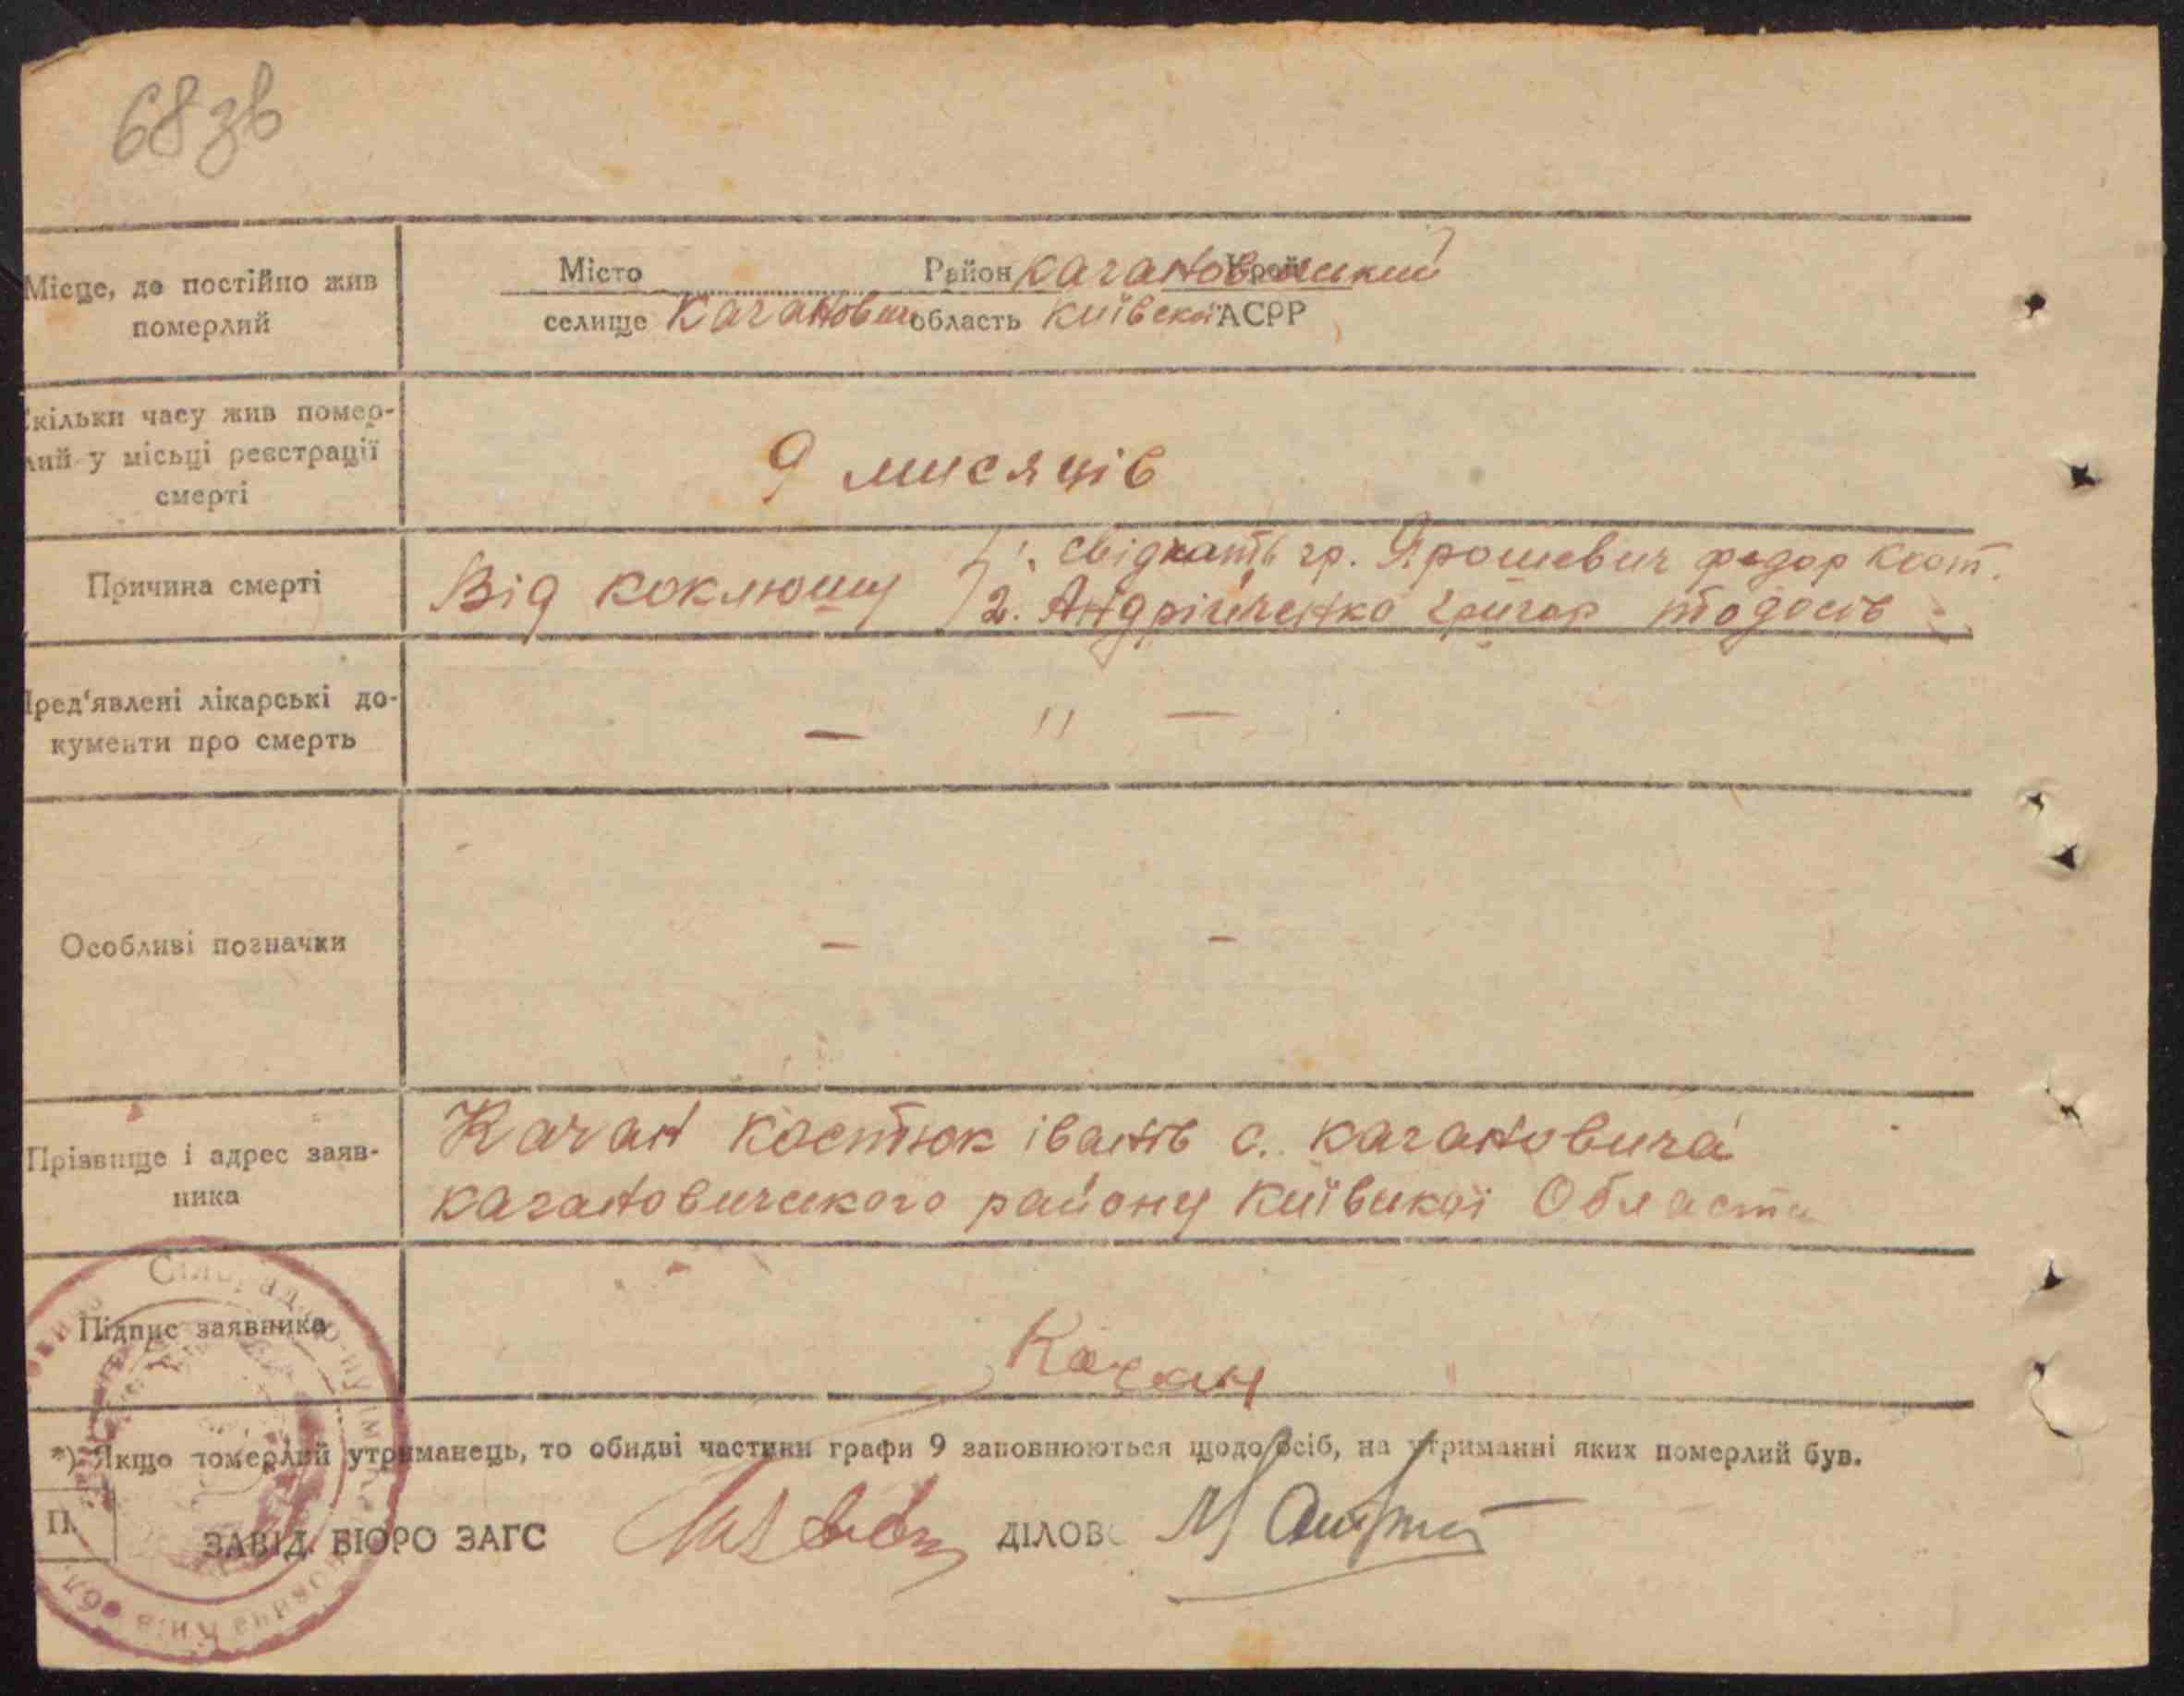 68 зв
Місце, де постійно жив
померлий
Місто Район Кагановицький Край
селище Кагановича область Київської АСРР
Скільки часу жив помер-
лий у місьці реєстрації
смерті
9 мисяців
Причина смерті
Від коклюшу
1. свідкать гр. Ярошевич федор Кост.
2. Андрійченко Григор тодосів
Пред'явлені лікарські до-
кументи про смерть
— " —
Особливі позначки
— —
Прізвище і адрес заяв-
ника
Качан Костюк іванів с. Кагановича
Кагановичського району Київської Області
Підпис заявника
Качан
*) Якщо померлий утриманець, то обидві частини графи 9 заповнюються щодо осіб, на утриманні яких померлий був.
П.
ЗАВІД. БЮРО ЗАГС ДІЛОВ